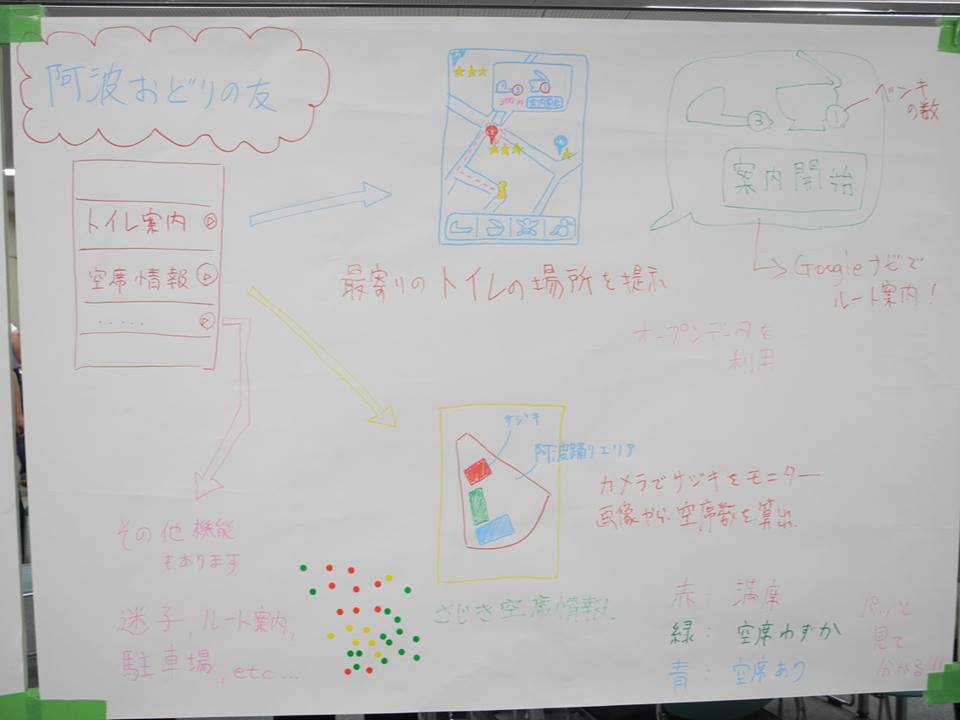 阿波おどりの友
トイレ案内
空席情報
.....
300m 案内開始
最寄りのトイレの場所を提示
3
1
ベンキの数
案内開始
Googleナビで
ルート案内!
オープンデータを
利用
サジキ
阿波踊りエリア
カメラでサジキをモニター
画像から、空席数を算出
さじき空席情報
赤: 満席
緑: 空席わずか
青: 空席あり
パッと
見て
分かる!!
その他機能
もあります
迷子、ルート案内、
駐車場、etc...